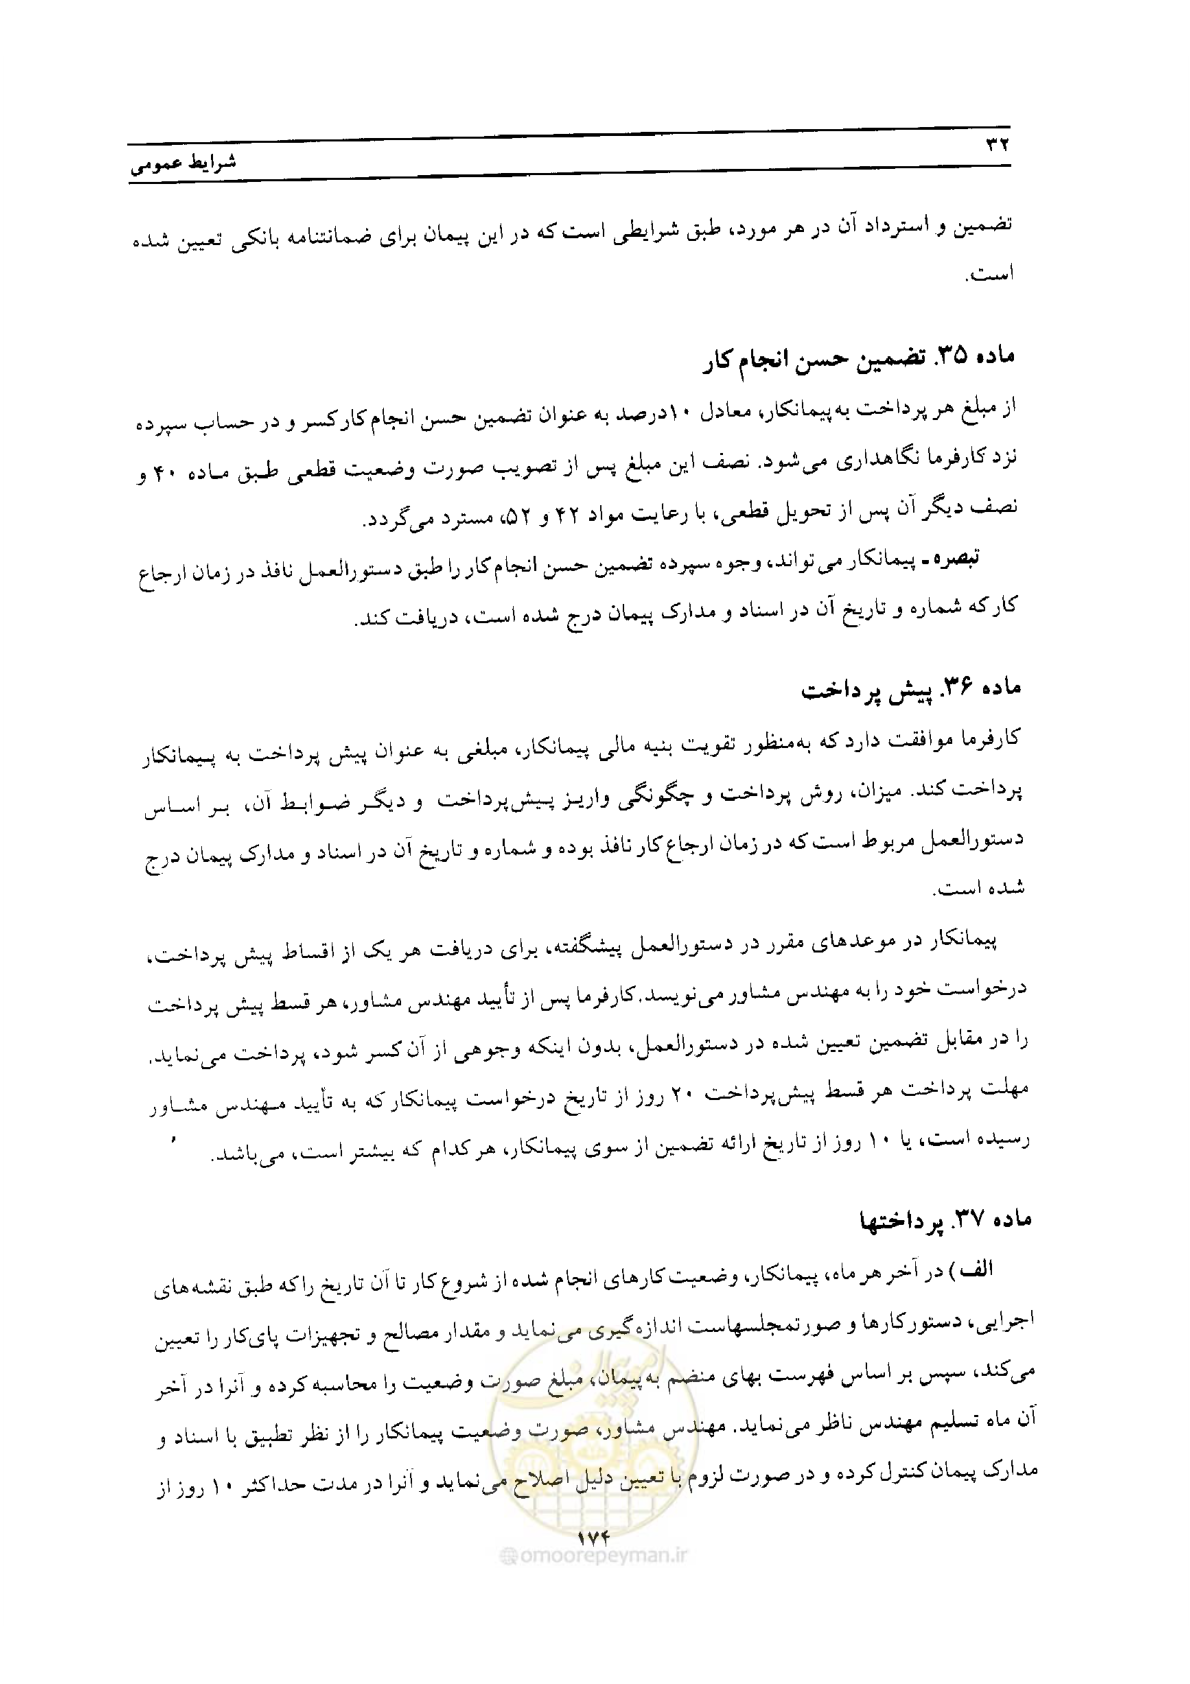 ۳۲
شرایط عمومی
تضمین و استرداد آن در هر مورد، طبق شرایطی است که در این پیمان برای ضمانتنامه بانکی تعیین شده
است.
ماده ۳۵. تضمین حسن انجام کار
از مبلغ هر پرداخت به پیمانکار، معادل ۱۰درصد به عنوان تضمین حسن انجام کار کسر و در حساب سپرده
نزد کارفرما نگاهداری می‌شود. نصف این مبلغ پس از تصویب صورت وضعیت قطعی طبق ماده ۴۰ و
نصف دیگر آن پس از تحویل قطعی، با رعایت مواد ۴۲ و ۵۲، مسترد می‌گردد.
تبصره ـ پیمانکار می‌تواند، وجوه سپرده تضمین حسن انجام کار را طبق دستورالعمل نافذ در زمان ارجاع
کار که شماره و تاریخ آن در اسناد و مدارک پیمان درج شده است، دریافت کند.
ماده ۳۶. پیش پرداخت
کارفرما موافقت دارد که به‌منظور تقویت بنیه مالی پیمانکار، مبلغی به عنوان پیش پرداخت به پیمانکار
پرداخت کند. میزان، روش پرداخت و چگونگی واریز پیش‌پرداخت و دیگر ضوابط آن، بر اساس
دستورالعمل مربوط است که در زمان ارجاع کار نافذ بوده و شماره و تاریخ آن در اسناد و مدارک پیمان درج
شده است.
پیمانکار در موعدهای مقرر در دستورالعمل پیشگفته، برای دریافت هر یک از اقساط پیش پرداخت،
درخواست خود را به مهندس مشاور می‌نویسد. کارفرما پس از تأیید مهندس مشاور، هر قسط پیش پرداخت
را در مقابل تضمین تعیین شده در دستورالعمل، بدون اینکه وجوهی از آن کسر شود، پرداخت می‌نماید.
مهلت پرداخت هر قسط پیش‌پرداخت ۲۰ روز از تاریخ درخواست پیمانکار که به تأیید مهندس مشاور
رسیده است، یا ۱۰ روز از تاریخ ارائه تضمین از سوی پیمانکار، هر کدام که بیشتر است، می‌باشد.
ماده ۳۷. پرداختها
الف) در آخر هر ماه، پیمانکار، وضعیت کارهای انجام شده از شروع کار تا آن تاریخ را که طبق نقشه‌های
اجرایی، دستور کارها و صورتمجلسهاست اندازه‌گیری می‌نماید و مقدار مصالح و تجهیزات پای‌کار را تعیین
می‌کند، سپس بر اساس فهرست بهای منضم به‌پیمان، مبلغ صورت وضعیت را محاسبه کرده و آنرا در آخر
آن ماه تسلیم مهندس ناظر می‌نماید. مهندس مشاور، صورت وضعیت پیمانکار را از نظر تطبیق با اسناد و
مدارک پیمان کنترل کرده و در صورت لزوم با تعیین دلیل اصلاح می‌نماید و آنرا در مدت حداکثر ۱۰ روز از
امور پیمان
۱۷۴
@omoorepeyman.ir